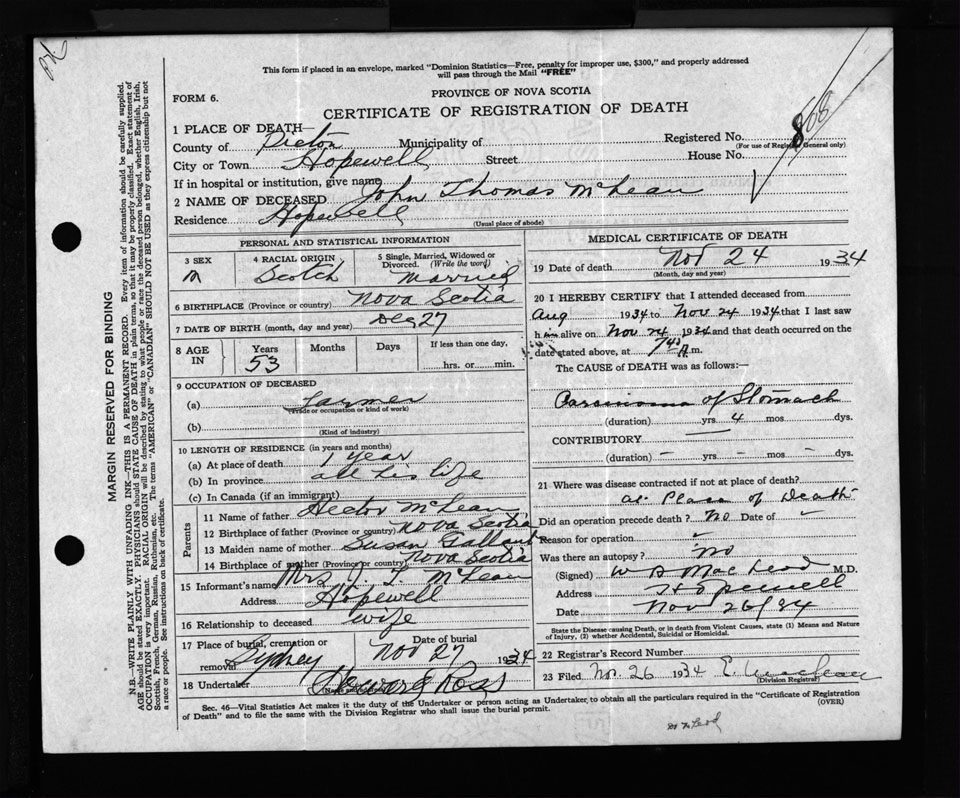 This form if placed in an envelope, marked "Dominion Statistics—Free, penalty for improper use, $300," and properly addressed
will pass through the Mail "FREE"
PROVINCE OF NOVA SCOTIA
FORM 6.
CERTIFICATE OF REGISTRATION OF DEATH
1 PLACE OF DEATH—
County of Pictou Municipality of Registered No. 808
(For use of Registrar General only)
City or Town Hopewell Street House No.
If in hospital or institution, give name
2 NAME OF DECEASED John Thomas McLean
Residence Hopewell
(Usual place of abode)
PERSONAL AND STATISTICAL INFORMATION
3 SEX M
4 RACIAL ORIGIN Scotch
5 Single, Married, Widowed or Divorced. (Write the word) Married
6 BIRTHPLACE (Province or country) Nova Scotia
7 DATE OF BIRTH (month, day and year) Dec 27
8 AGE IN Years 53 Months Days If less than one day, hrs. or min.
9 OCCUPATION OF DECEASED
(a) Farmer
(Trade or occupation or kind of work)
(b)
(Kind of industry)
10 LENGTH OF RESIDENCE (in years and months)
(a) At place of death 1 year
(b) In province all his life
(c) In Canada (if an immigrant)
Parents
11 Name of father Hector McLean
12 Birthplace of father (Province or country) Nova Scotia
13 Maiden name of mother Susan Gallant
14 Birthplace of mother (Province or country) Nova Scotia
15 Informant's name Mrs J. T. McLean
Address Hopewell
16 Relationship to deceased wife
17 Place of burial, cremation or removal Sydney Date of burial Nov 27 1934
18 Undertaker Howard Ross
(Name and address)
MEDICAL CERTIFICATE OF DEATH
19 Date of death Nov 24 1934
(Month, day and year)
20 I HEREBY CERTIFY that I attended deceased from
Aug 1934 to Nov 24 1934 that I last saw
him alive on Nov 24 1934 and that death occurred on the
date stated above, at 7.45 A.m.
The CAUSE OF DEATH was as follows:—
Carcinoma of Stomach
(duration) yrs 4 mos dys.
CONTRIBUTORY —
(duration) – yrs – mos – dys.
21 Where was disease contracted if not at place of death?
at Place of Death
Did an operation precede death? No Date of
Reason for operation
Was there an autopsy? No
(Signed) W B MacLeod M.D.
Address Hopewell
Date Nov 26/34
State the Disease causing Death, or in death from Violent Causes, state (1) Means and Nature
of Injury, (2) whether Accidental, Suicidal or Homicidal.
22 Registrar's Record Number
23 Filed Nov. 26 1934 E. Maclean
(Division Registrar)
Sec. 46—Vital Statistics Act makes it the duty of the Undertaker or person acting as Undertaker to obtain all the particulars required in the "Certificate of Registration
of Death" and to file the same with the Division Registrar who shall issue the burial permit.
(OVER)
MARGIN RESERVED FOR BINDING
N.B.—WRITE PLAINLY WITH UNFADING INK—THIS IS A PERMANENT RECORD. Every item of information should be carefully supplied.
AGE should be stated EXACTLY. PHYSICIANS should STATE CAUSE OF DEATH in plain terms, so that it may be properly classified. Exact statement of
OCCUPATION is very important. RACIAL ORIGIN will be described by stating to what people or race the deceased person belonged, whether English, Irish,
Scottish, French, German, Russian, Ruthenian, etc. The terms "AMERICAN" or "CANADIAN" SHOULD NOT BE USED as they express citizenship but not
a race or people. See instructions on back of certificate.